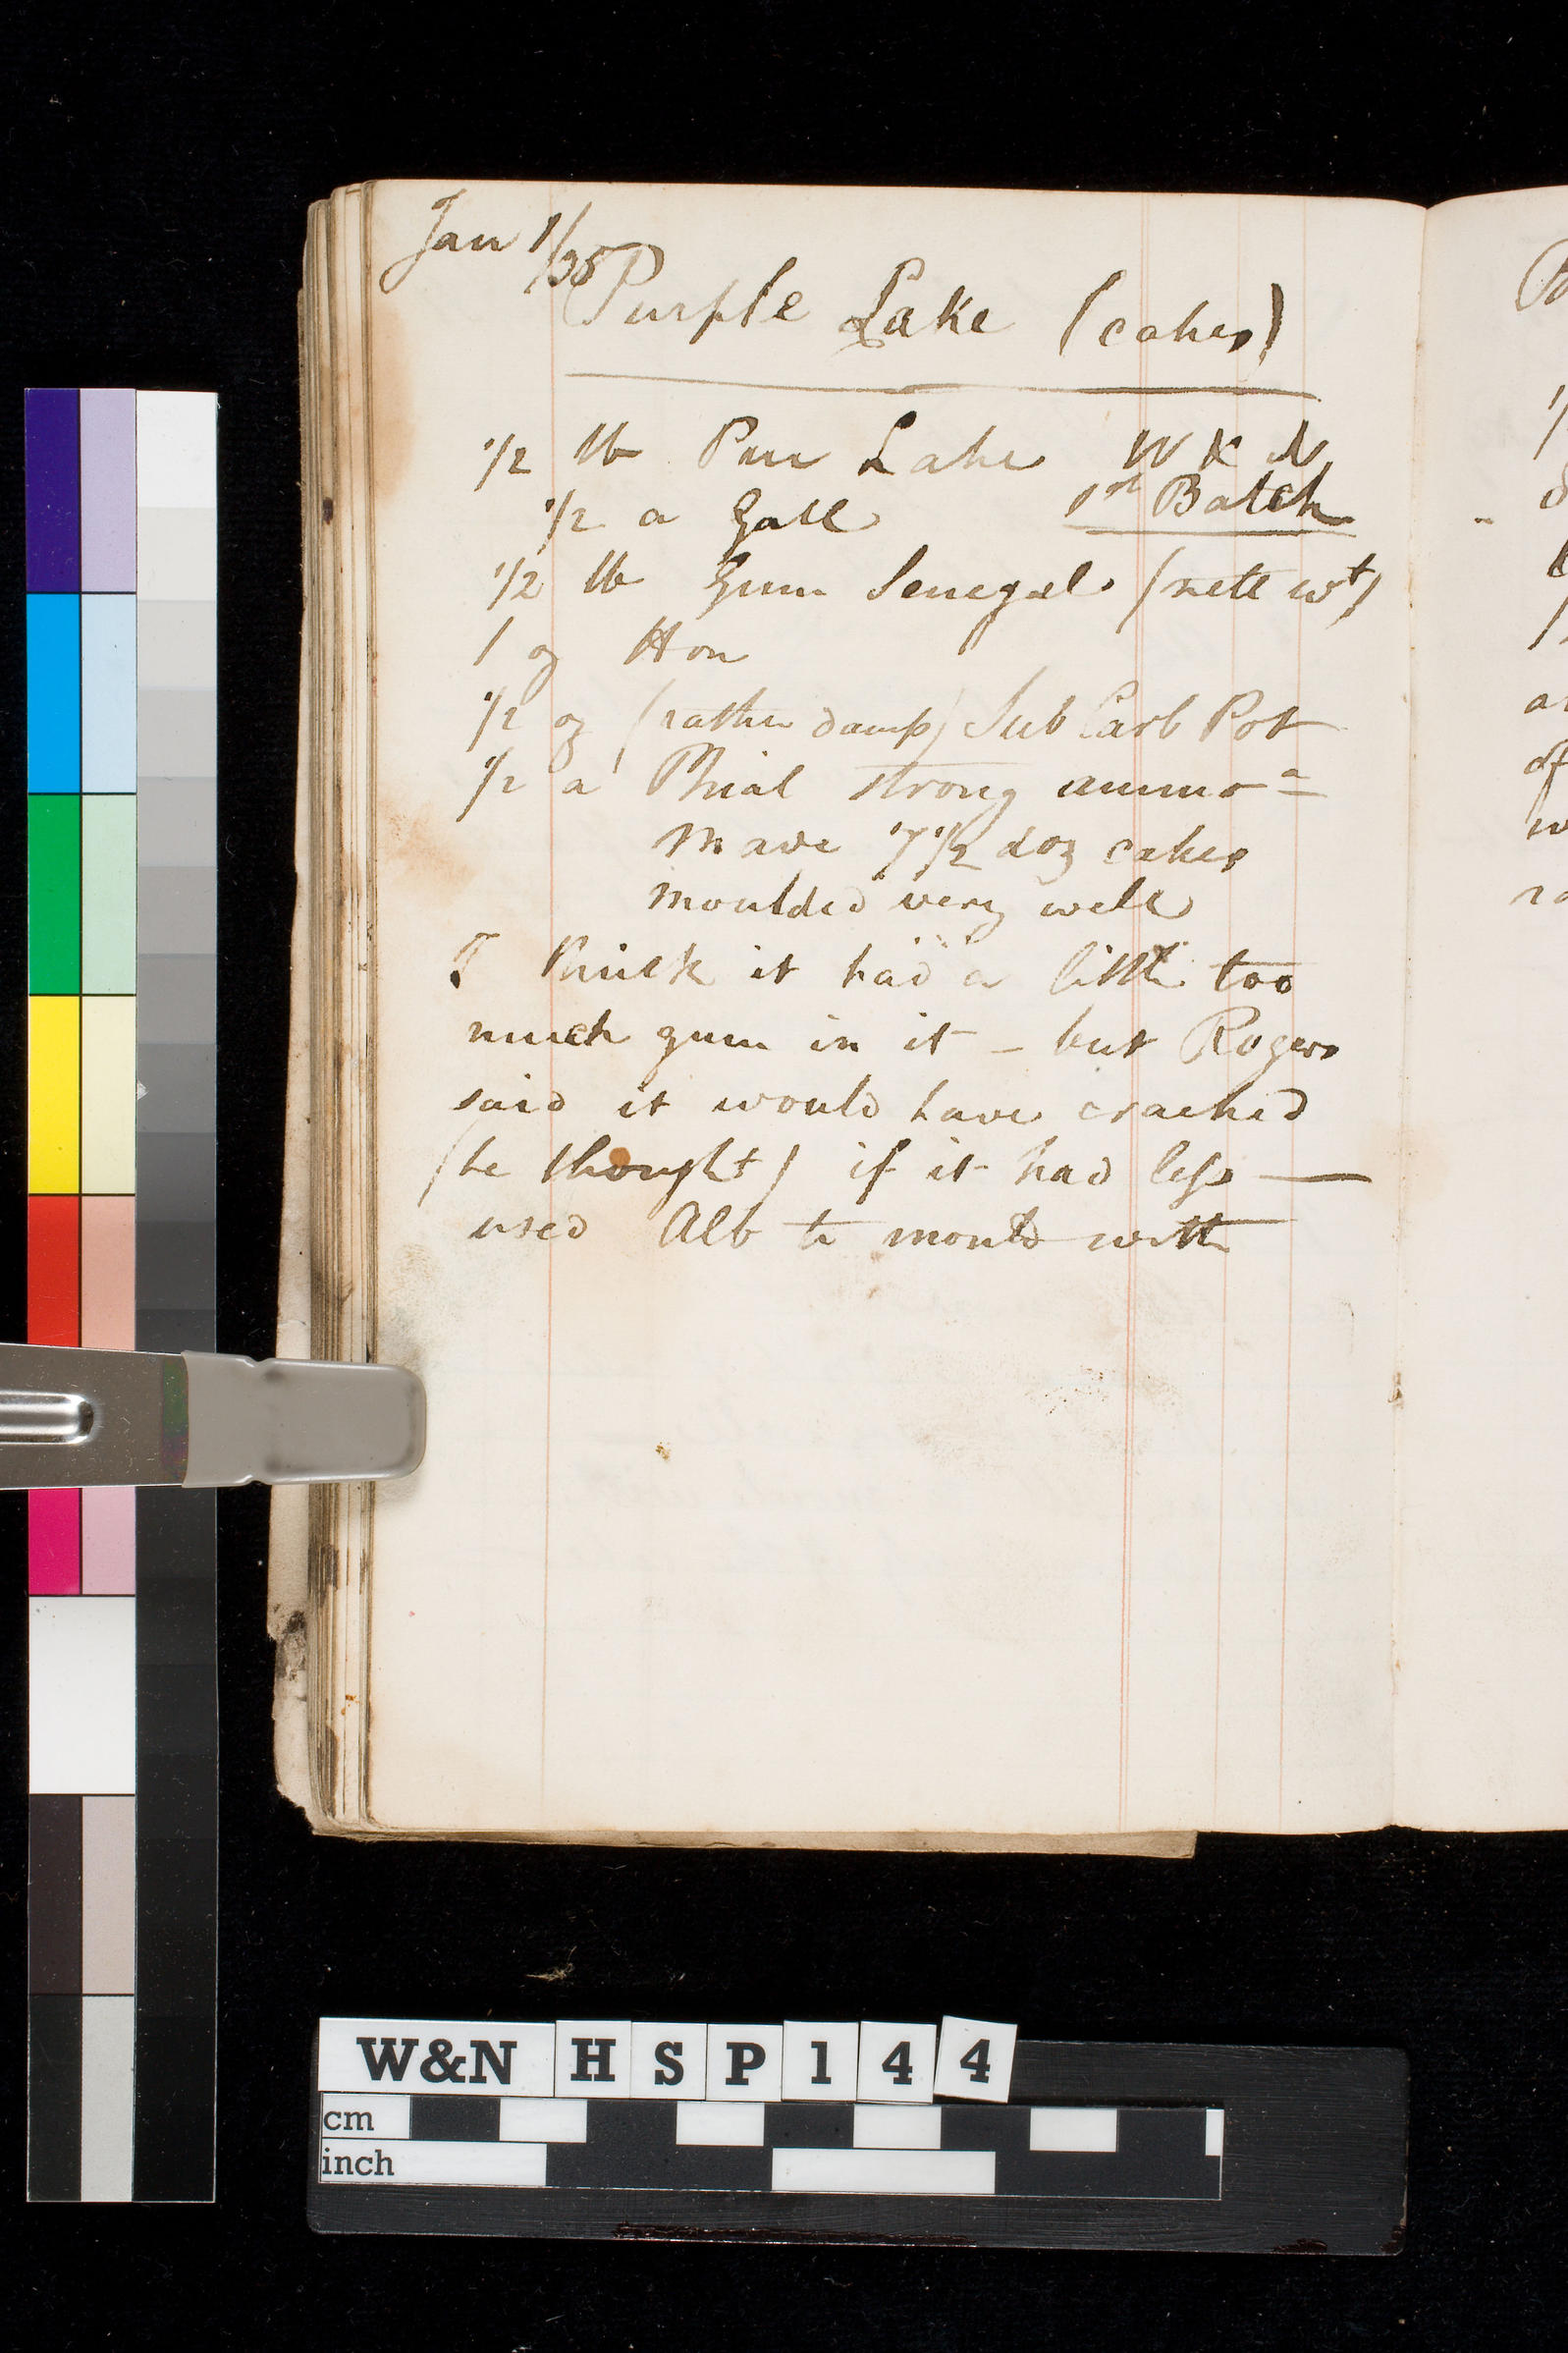 Jan 1/38
Purple Lake (cakes)
1/2 lb Pur Lake W K N
1/2 a Gall 1st Batch
1/2 lb Gum Senegal (nett wt)
1 oz Hon
1/2 oz (rather damp) Sub Carb Pot
1/2 a Phial strong ammoa
Made 7 1/2 doz cakes
moulded very well
I think it had a little too
much gum in it – but Rogers
said it would have cracked
(he thought) if it had less —
used Alb to mould with
W&N HSP144
cm
inch